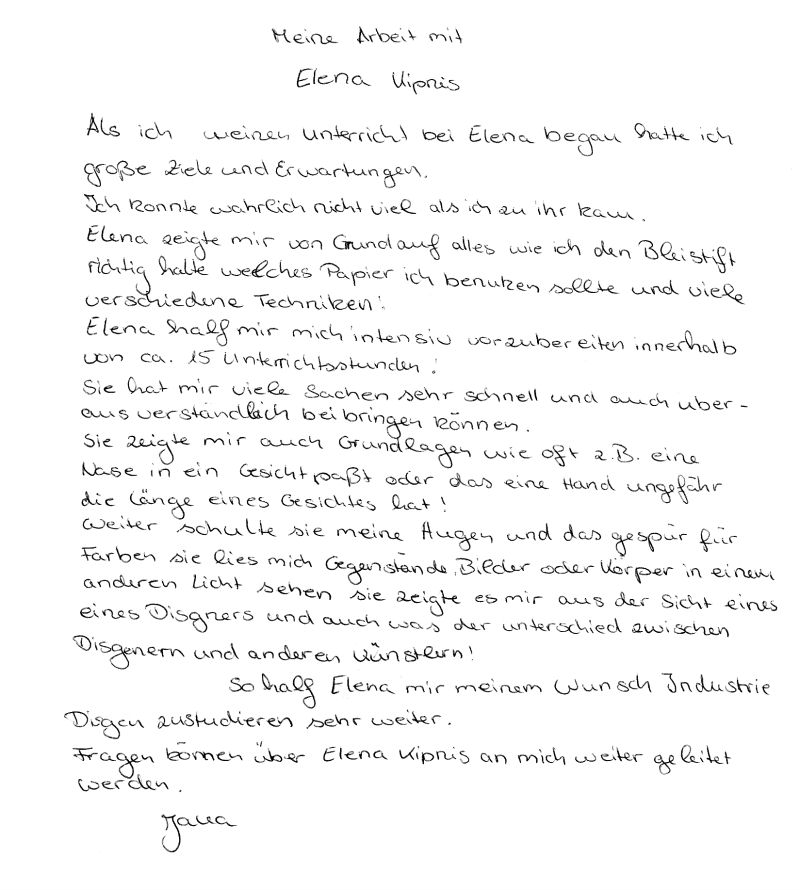 Meine Arbeit mit
Elena Kipnis
Als ich meinen Unterricht bei Elena began hatte ich
große Ziele und Erwartungen.
Ich konnte wahrlich nicht viel als ich zu ihr kam.
Elena zeigte mir von Grund auf alles wie ich den Bleistift
richtig halte welches Papier ich benutzen sollte und viele
verschiedene Techniken!
Elena half mir mich intensiv vorzubereiten innerhalb
von ca. 15 Unterrichtsstunden!
Sie hat mir viele Sachen sehr schnell und auch über-
aus verständlich beibringen können.
Sie zeigte mir auch Grundlagen wie oft z.B. eine
Nase in ein Gesicht paßt oder das eine Hand ungefähr
die Länge eines Gesichtes hat!
Weiter schulte sie meine Augen und das gespür für
Farben sie lies mich Gegenstände, Bilder oder Körper in einem
anderen Licht sehen sie zeigte es mir aus der Sicht eines
eines Disgners und auch was der unterschied zwischen
Disgenern und anderen Künstlern!
So half Elena mir meinem Wunsch Industrie
Disgen zustudieren sehr weiter.
Fragen können über Elena Kipnis an mich weiter geleitet
werden.
Jana